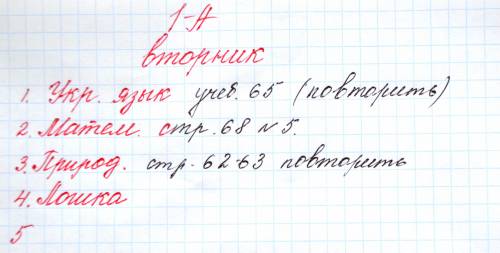 1-А
вторник
1. Укр. язык учеб. 65 (повторить)
2. Матем. стр. 68 № 5.
3. Природ. стр. 62-63 повторить
4. Логика
5